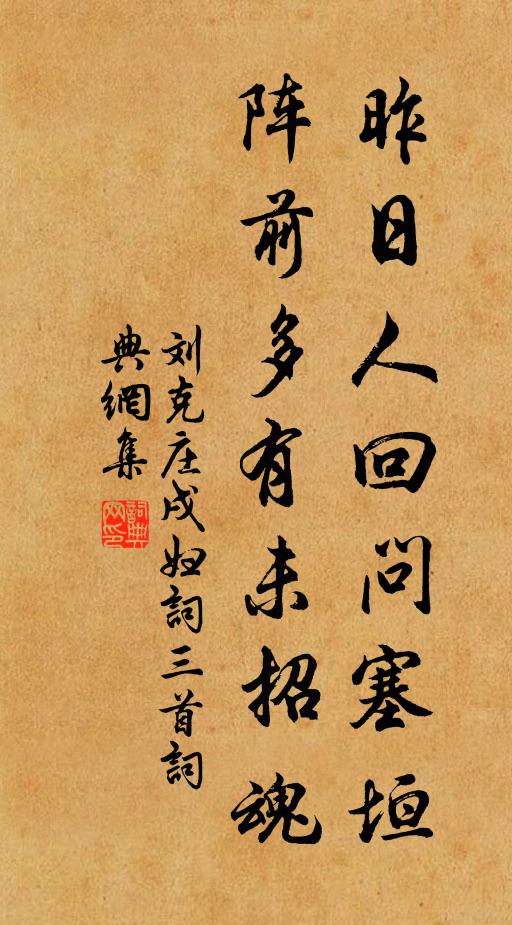 昨日人回问塞垣
阵前多有未招魂
刘克庄戍妇詞三首詞
典網集
詞典
网印